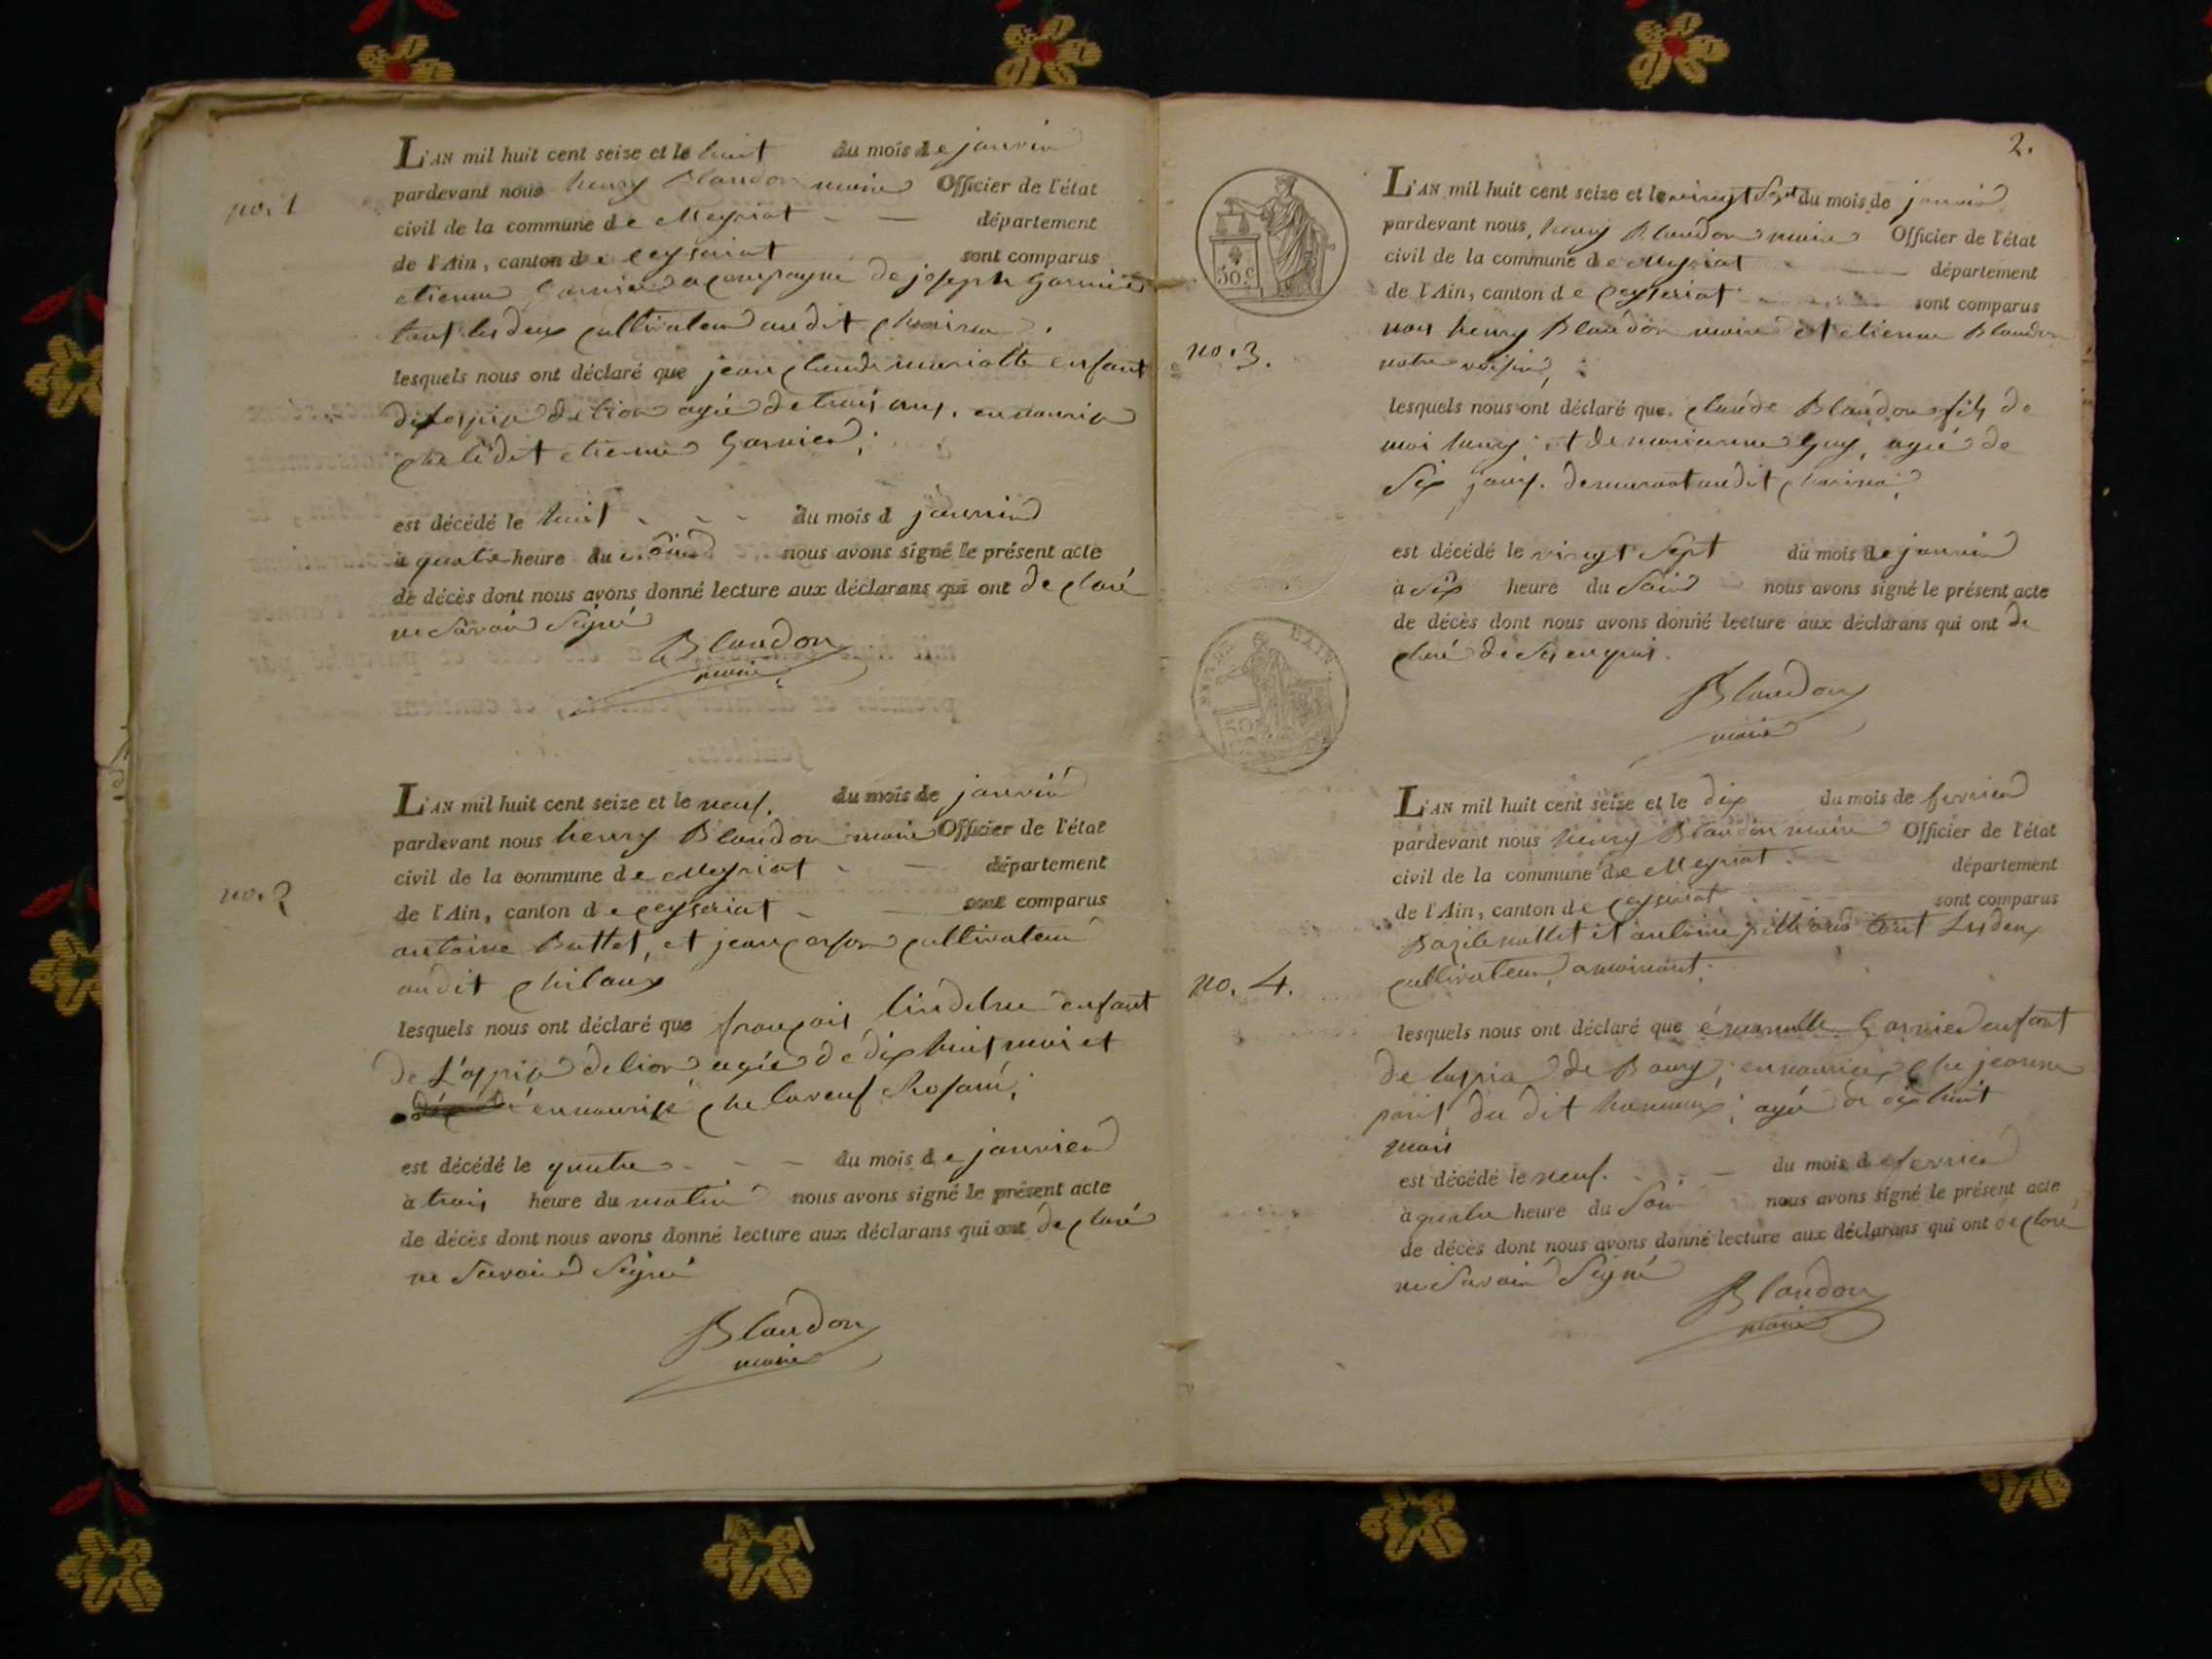 no. 1
L'AN mil huit cent seize et le huit du mois de janvier
pardevant nous henry Blandon maire Officier de l'état
civil de la commune de Meyriat département
de l'Ain, canton de Ceyseriat sont comparus
etienne Garnier acompagné de joseph Garnier
tous les deux cultivateur audit
lesquels nous ont déclaré que jean claude mariatte enfant
de lion agée de trois ans, en nourice
che le dit etienne Garnier;
est décédé le huit du mois d janvier
à quatre heure du nous avons signé le présent acte
de décès dont nous avons donné lecture aux déclarans qui ont declaré
ne Savoir Signé
Blandon
maire
no. 2
L'AN mil huit cent seize et le neuf. du mois de janvier
pardevant nous henry Blandon maire Officier de l'état
civil de la commune de Meyriat département
de l'Ain, canton de ceyseriat sont comparus
antoine Buttet, et jean cultivateur
audit
lesquels nous ont déclaré que françois enfant
de L'ospice de lion agée de dix huit mois et
en nourice che la veuf
est décédé le quatre du mois de janvier
à trois heure du matin nous avons signé le présent acte
de décès dont nous avons donné lecture aux déclarans qui ont declaré
ne Savoir Signé
Blandon
maire
2.
50 c
no. 3.
L'AN mil huit cent seize et le vingt Sept du mois de janvier
pardevant nous, henry Blandon maire Officier de l'état
civil de la commune de Meyriat département
de l'Ain, canton de Ceyseriat sont comparus
nous henry Blandon maire et etienne Blandon
notre voisin,
lesquels nous ont déclaré que claude Blandon fils de
moi henry; et de marianne Guy, agée de
Six jours. demeurant audit
est décédé le vingt Sept du mois de janvier
à Six heure du Soir nous avons signé le présent acte
de décès dont nous avons donné lecture aux déclarans qui ont de
claré de
Blandon
maire
no. 4.
L'AN mil huit cent seize et le dix du mois de fevrier
pardevant nous henry Blandon maire Officier de l'état
civil de la commune de Meyriat département
de l'Ain, canton de Ceyseriat sont comparus
et antoine tout Les deux
cultivateur
lesquels nous ont déclaré que Garnier enfant
de de Bourg; en nourice che jeanne
du dit hameaux; agé de dix huit
mois
est décédé le neuf. du mois de fevrier
à quatre heure du Soir nous avons signé le présent acte
de décès dont nous avons donné lecture aux déclarans qui ont declaré
ne Savoir Signé
Blandon
maire